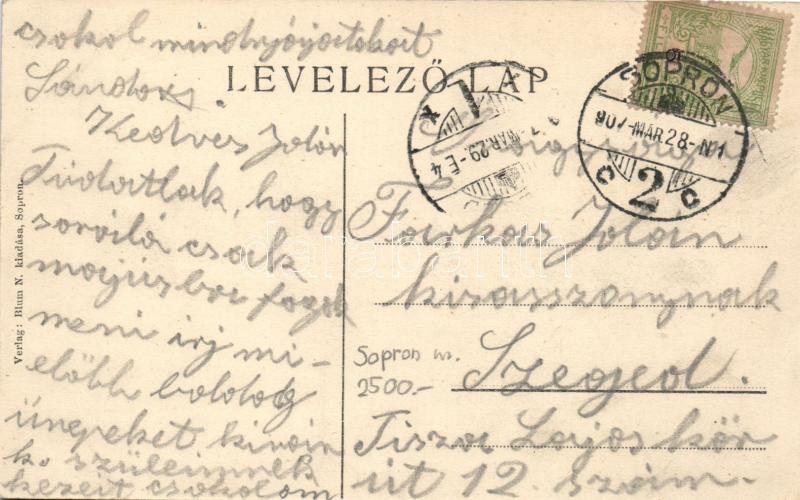 csokol mindnyájotokat
Sándor
LEVELEZŐ LAP
Kedves Jolán
Tudatlak, hogy
csak
majusba fogok
meni irj mi-
előbb boldog
ünepeket kiván
k. szüleimnek
kezeit csokolom
Farkas Jolán
kisasszonynak
Szeged.
Tisza Lajos kör
út 12. szám.
Sopron m.
2500.-
SOPRON
907 MAR 28 - N1
C 2 C
MAR 29 - E4
Verlag: Blum N. kiadása, Sopron.
darabanth